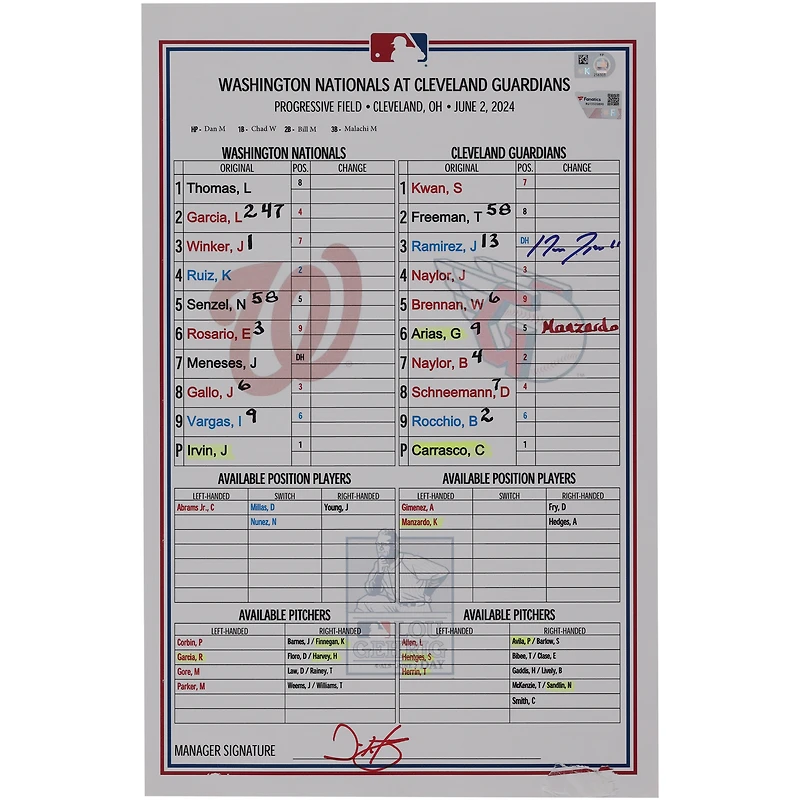 WASHINGTON NATIONALS AT CLEVELAND GUARDIANS
PROGRESSIVE FIELD • CLEVELAND, OH • JUNE 2, 2024
Fanatics
HP - Dan M 1B - Chad W 2B - Bill M 3B - Malachi M
WASHINGTON NATIONALS
ORIGINAL POS. CHANGE
1 Thomas, L 8
2 Garcia, L 247 4
3 Winker, J 1 7
4 Ruiz, K 2
5 Senzel, N 58 5
6 Rosario, E 3 9
7 Meneses, J DH
8 Gallo, J 6 3
9 Vargas, I 9 6
P Irvin, J 1
CLEVELAND GUARDIANS
ORIGINAL POS. CHANGE
1 Kwan, S 7
2 Freeman, T 58 8
3 Ramirez, J 13 DH
4 Naylor, J 3
5 Brennan, W 6 9
6 Arias, G 9 5 Manzardo
7 Naylor, B 4 2
8 Schneemann, D 7 4
9 Rocchio, B 2 6
P Carrasco, C 1
AVAILABLE POSITION PLAYERS
LEFT-HANDED SWITCH RIGHT-HANDED
Abrams Jr., C Millas, D Young, J
Nunez, N
AVAILABLE POSITION PLAYERS
LEFT-HANDED SWITCH RIGHT-HANDED
Gimenez, A Fry, D
Manzardo, K Hedges, A
AVAILABLE PITCHERS
LEFT-HANDED RIGHT-HANDED
Corbin, P Barnes, J / Finnegan, K
Garcia, R Floro, D / Harvey, H
Gore, M Law, D / Rainey, T
Parker, M Weems, J / Williams, T
AVAILABLE PITCHERS
LEFT-HANDED RIGHT-HANDED
Allen, L Avila, P / Barlow, S
Hentges, S Bibee, T / Clase, E
Herrin, T Gaddis, H / Lively, B
McKenzie, T / Sandlin, N
Smith, C
LOU
GEHRIG
DAY
MANAGER SIGNATURE